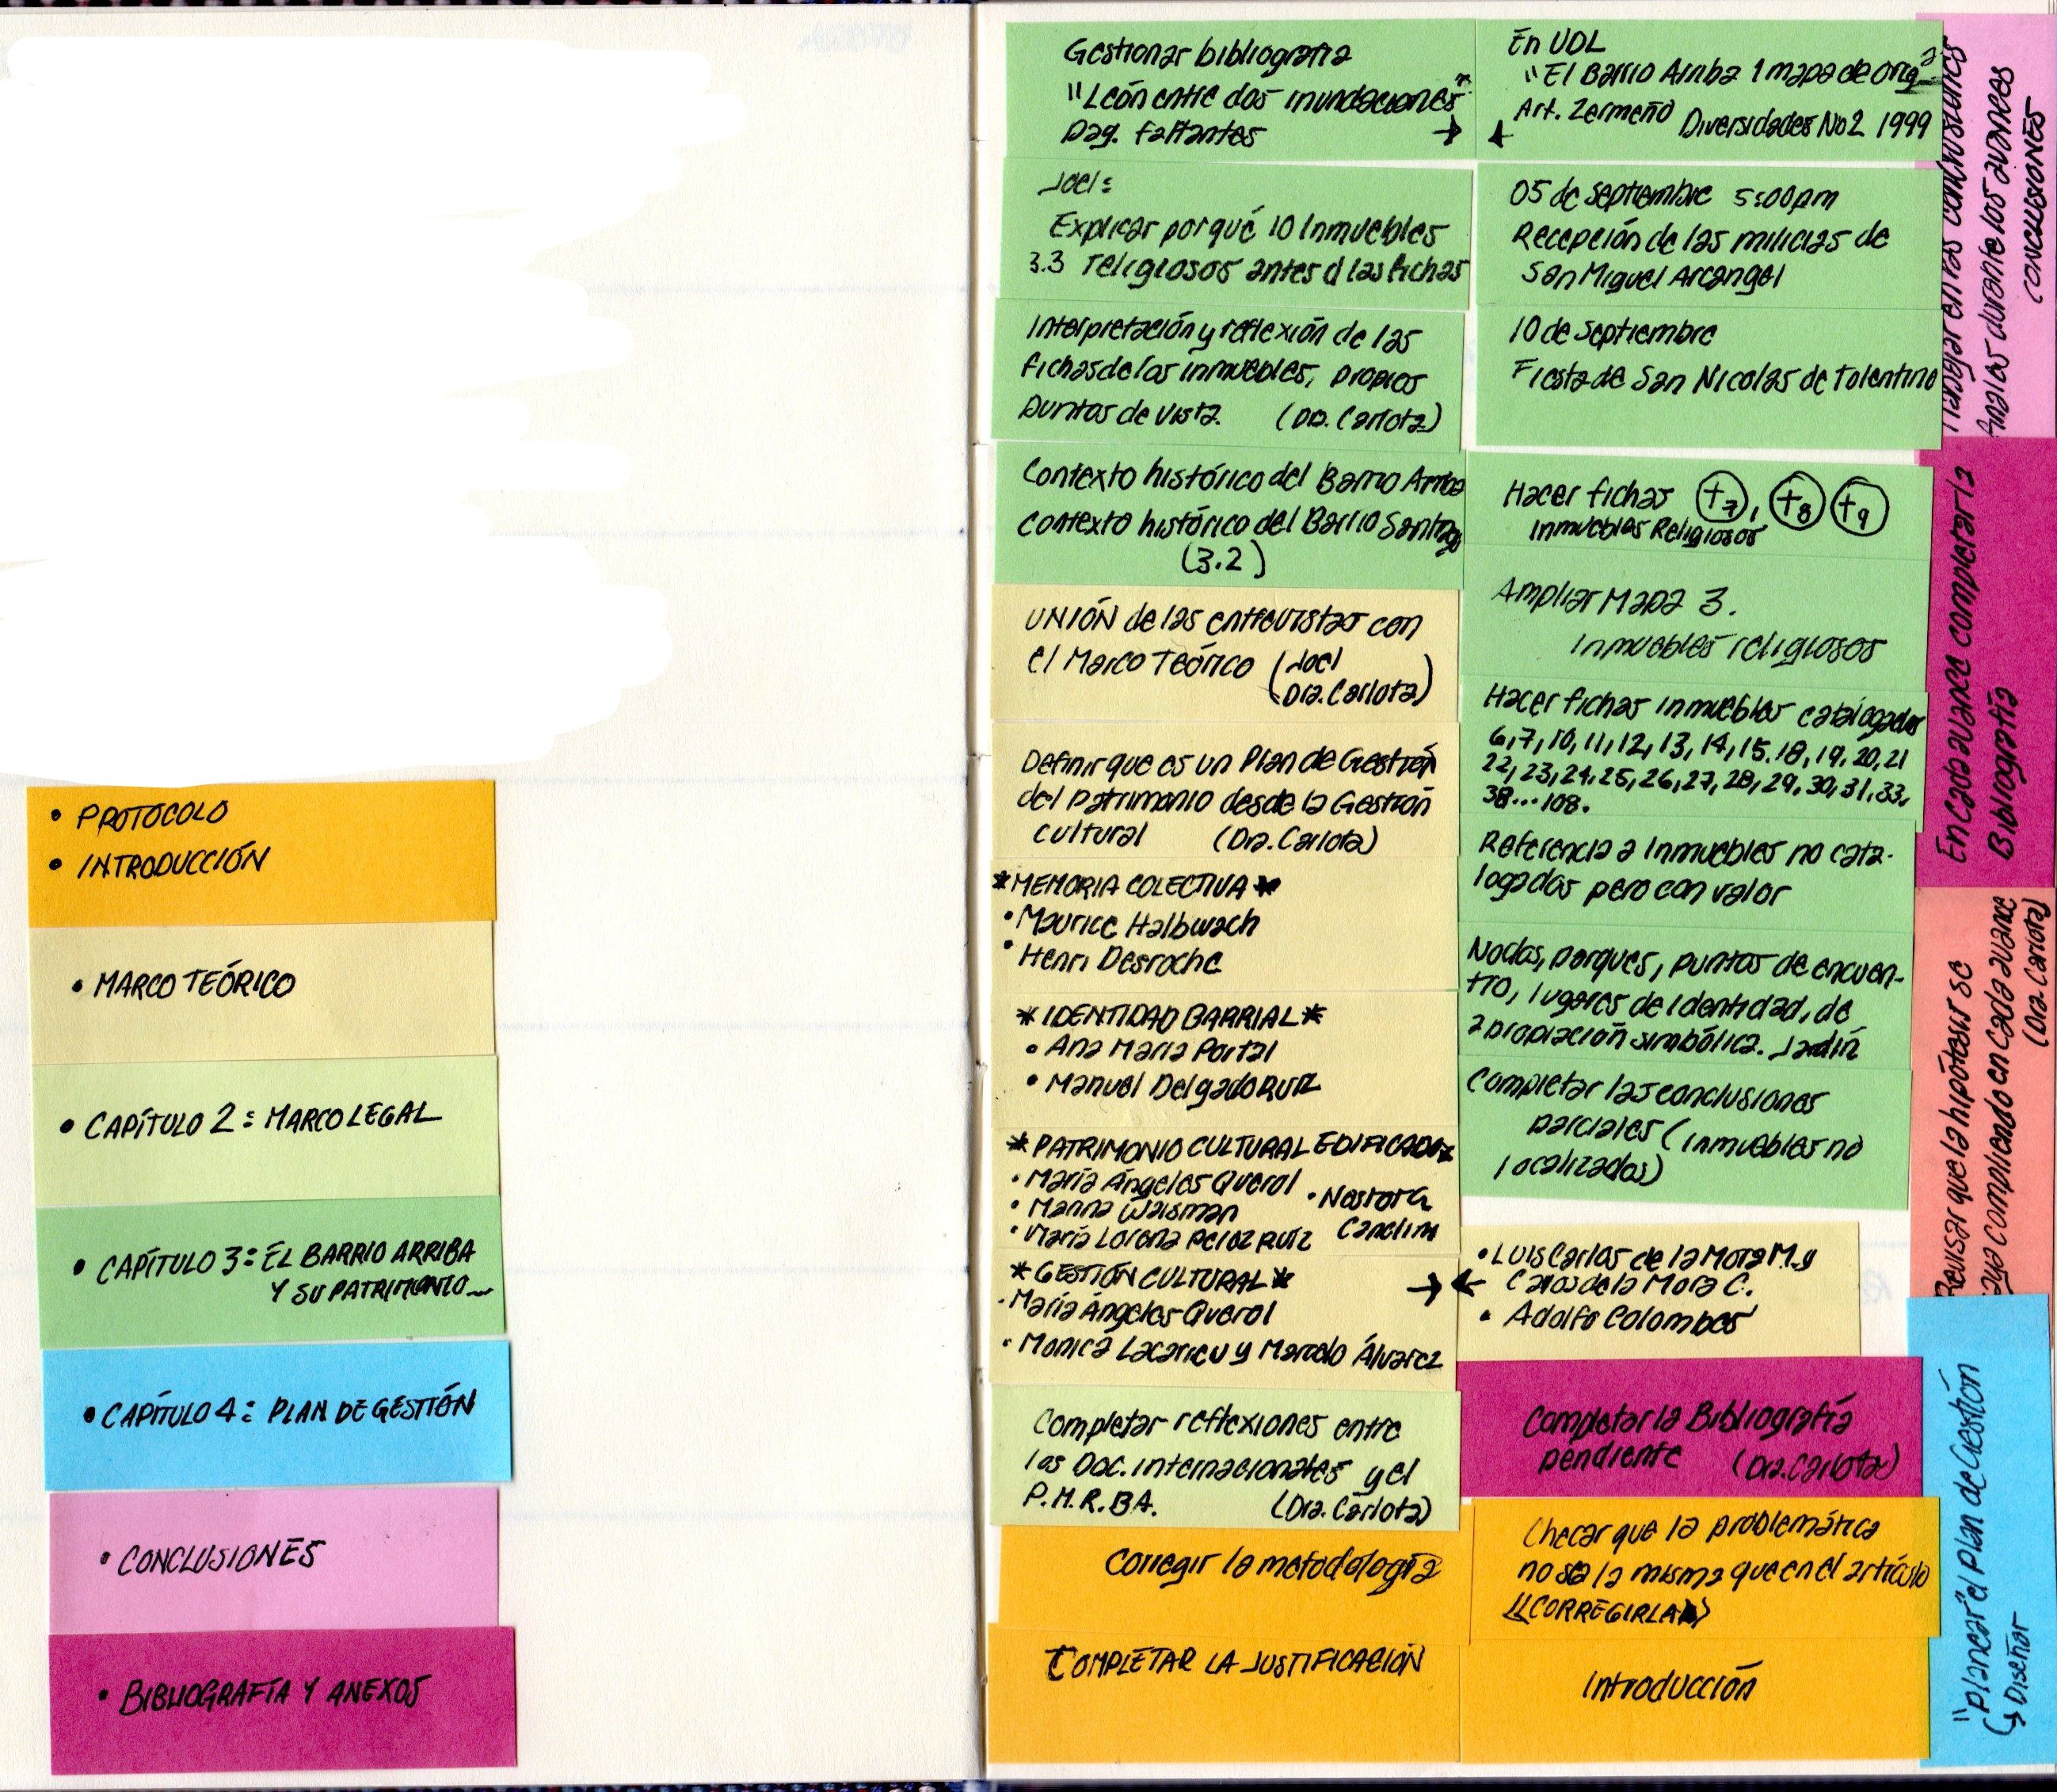 • PROTOCOLO
• INTRODUCCIÓN
• MARCO TEÓRICO
• CAPÍTULO 2: MARCO LEGAL
• CAPÍTULO 3: EL BARRIO ARRIBA
Y SU PATRIMONIO...
• CAPÍTULO 4: PLAN DE GESTIÓN
• CONCLUSIONES
• BIBLIOGRAFÍA Y ANEXOS
Gestionar bibliografía
"León entre dos inundaciones"
pag. faltantes →
Joel:
Explicar porqué 10 Inmuebles
3.3 religiosos antes d las fichas
Interpretación y reflexión de las
fichas de los inmuebles, propios
puntos de vista. (Dra. Carlota)
Contexto histórico del Barrio Arriba
Contexto histórico del Barrio Santiago
(3.2)
UNIÓN de las entrevistas con
el Marco Teórico (Joel
Dra. Carlota)
Definir que es un Plan de Gestión
del patrimonio desde la Gestión
cultural (Dra. Carlota)
*MEMORIA COLECTIVA*
• Maurice Halbwach
• Henri Desroche
*IDENTIDAD BARRIAL*
• Ana María Portal
• Manuel Delgado Ruiz
*PATRIMONIO CULTURAL EDIFICADO*
• María Ángeles Querol
• Marina Waisman
• María Lorena Pérez Ruíz
• Nestor G.
Canclini
*GESTIÓN CULTURAL* →
• María Ángeles Querol
• Monica Lacarrieu y Marcelo Álvarez
Completar reflexiones entre
las Doc. internacionales y el
P.M.R.BA. (Dra. Carlota)
Corregir la metodología
COMPLETAR LA JUSTIFICACIÓN
En UDL
"El Barrio Arriba 1 mapa de orig
Art. Zermeño Diversidades No2 1999
05 de septiembre 5:00pm
Recepción de las milicias de
San Miguel Arcangel
10 de septiembre
Fiesta de San Nicolas de Tolentino
Hacer fichas +7, +8 +9
Inmuebles Religiosos
Ampliar Mapa 3.
Inmuebles religiosos
Hacer fichas inmuebles catalogados
6,7,10,11,12,13,14,15,18,19,20,21
22,23,24,25,26,27,28,29,30,31,33,
38...108.
Referencia a Inmuebles no cata-
logados pero con valor
Nodos, parques, puntos de encuen-
tro, lugares de Identidad, de
apropiación simbólica. Jardín
Completar las conclusiones
parciales (inmuebles no
localizados)
• Luis Carlos de la Mora M. y
← Carlos de la Mora C.
• Adolfo Colombes
Completar la Bibliografía
pendiente (Dra. Carlota)
Checar que la problemática
no sea la misma que en el artículo
((CORREGIRLA))
Introducción
Trabajar en las conclusiones
Finales durante los avances
CONCLUSIONES
En cada avance completar la
Bibliografía
Revisar que la hipótesis se
vaya cumpliendo en cada avance
(Dra. Carlota)
"Planear" el Plan de Gestión
↳ Diseñar